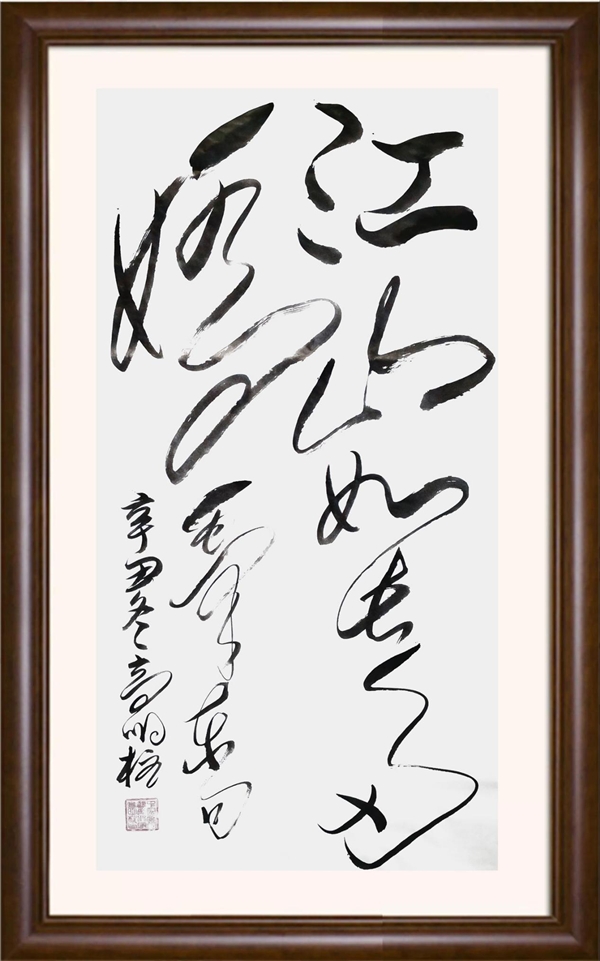 江山如此多
娇 毛泽东句
辛丑冬高明